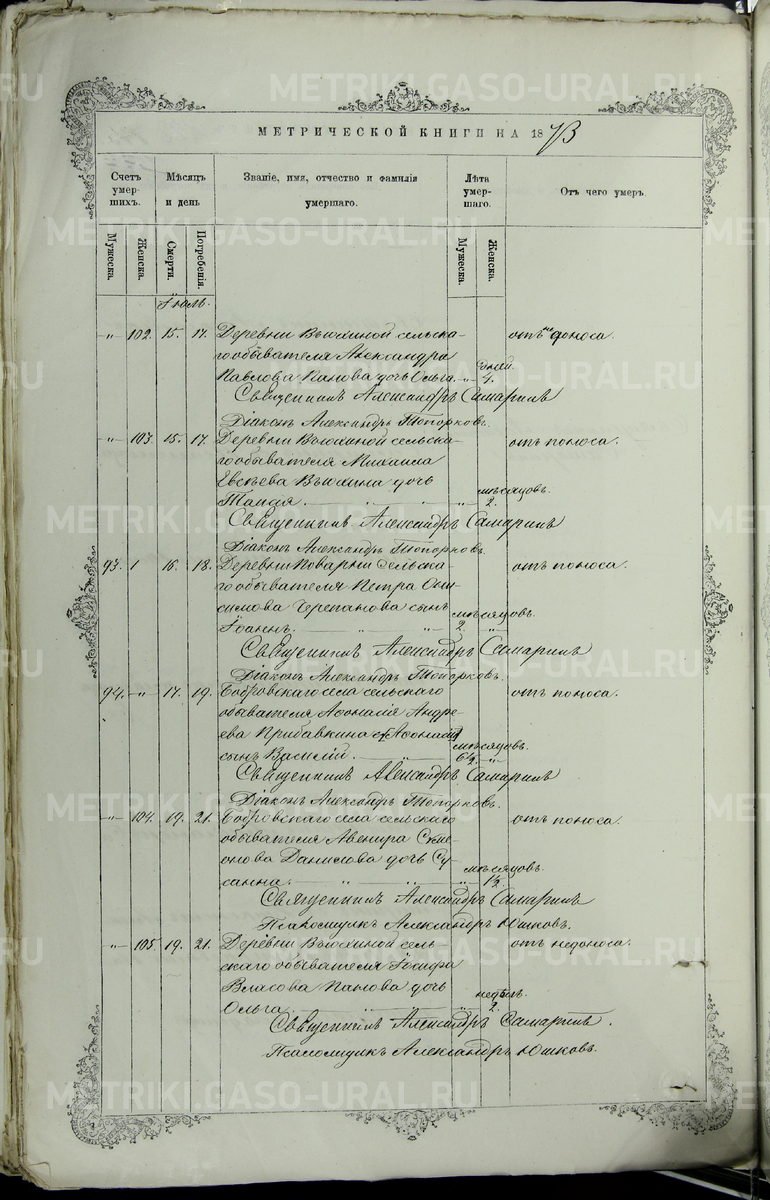 МЕТРИЧЕСКОЙ КНИГИ НА 1873
Счетъ умер-шихъ.
Мѣсяцъ и день
Званіе, имя, отчество и фамилія умершаго.
Лѣта умер-шаго.
Отъ чего умеръ.
Мужеска.
Женска.
Смерти.
Погребенія.
Мужеска.
Женска.
Іюль.
„ 102. 15. 17. Деревни Вьюхиной сельска- отъ недоноса.
го обывателя Александра
дней.
Павлова Панова дочь Ольга. „ 4.
Священникъ Александръ Самаринъ
Діаконъ Александръ Топорковъ.
„ 103 15. 17. Деревни Вьюхиной сельска- отъ поноса.
го обывателя Михаила
Евсѣева Вьюхина дочь
мѣсяцовъ.
Таисія. „ „ „ 2.
Священникъ Александръ Самаринъ
Діаконъ Александръ Топорковъ.
93. 16. 18. Деревни Поварни сельска- отъ поноса.
го обывателя Петра Они-
симова Черепанова сынъ
мѣсяцовъ.
Іоаннъ. „ 2. „
Священникъ Александръ Самаринъ
Діаконъ Александръ Топорковъ.
94. „ 17. 19. Бобровскаго села сельскаго отъ поноса.
обывателя Афонасія Андре-
ева Прибавкина
мѣсяцовъ.
сынъ Василій. „ 6½. „
Священникъ Александръ Самаринъ
Діаконъ Александръ Топорковъ.
„ 104. 19. 21. Бобровскаго села сельскаго отъ поноса.
обывателя Авенира Симе-
онова Данилова дочь Су-
мѣсяцовъ.
санна. „ „ „ 1½.
Священникъ Александръ Самаринъ
Псаломщикъ Александръ Юшковъ.
„ 105. 19. 21. Деревни Вьюхиной сель- отъ недоноса.
скаго обывателя Іосифа
Власова Панова дочь
недѣль.
Ольга. „ „ 2.
Священникъ Александръ Самаринъ.
Псаломщикъ Александръ Юшковъ.
METRIKI.GASO-URAL.RU